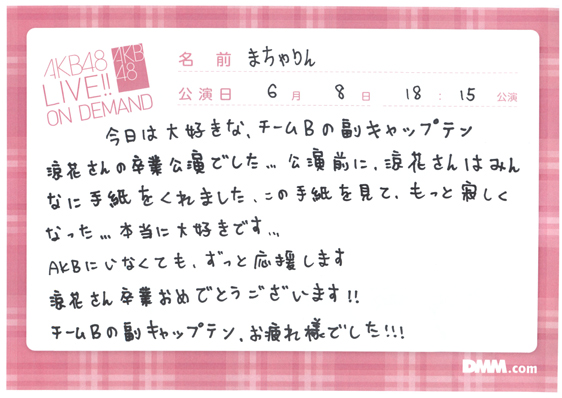 AKB48
LIVE!!
ON DEMAND
AKB
48
名 前 まちゃりん
公演日 6 月 8 日 18 : 15 公演
今日は大好きな、チームBの副キャップテン
涼花さんの卒業公演でした... 公演前に、涼花さんはみん
なに手紙をくれました、この手紙を見て、もっと寂しく
なった... 本当に大好きです...
AKBにいなくても、ずっと応援します
涼花さん卒業おめでとうございます!!
チームBの副キャップテン、お疲れ様でした!!!
DMM.com